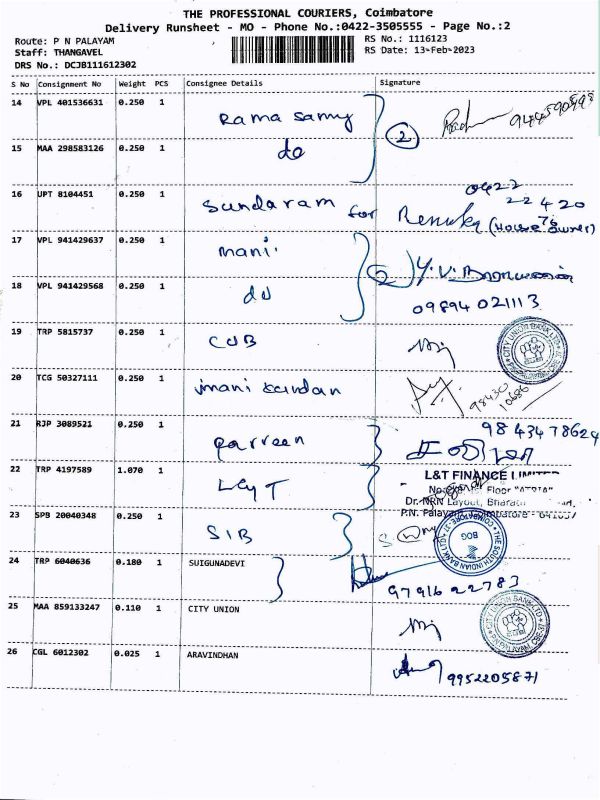 THE PROFESSIONAL COURIERS, Coimbatore
Delivery Runsheet - MO - Phone No.:0422-3505555 - Page No.:2
Route: P N PALAYAM
Staff: THANGAVEL
DRS No.: DCJB111612302
RS No.: 1116123
RS Date: 13-Feb-2023
S No Consignment No Weight PCS Consignee Details Signature
14 VPL 401536631 0.250 1 Rama Samy
15 MAA 298583126 0.250 1 do
2
16 UPT 8104451 0.250 1 Sundaram for Renuka (House owner)
0422
22420
76
17 VPL 941429637 0.250 1 mani.
18 VPL 941429568 0.250 1 do
2 Y.V.
09894 021113
19 TRP 5815737 0.250 1 CUB
CITY UNION BANK LTD
20 TCG 50327111 0.250 1 mani kandan
98430
10686
21 RJP 3089521 0.250 1 parveen
98 434 78624
22 TRP 4197589 1.070 1 L&T
L&T FINANCE LIMITED
Floor "ATRIA"
Dr. NRN Layout, Bharathi
P.N. Palayam, Coimbatore - 641037
23 SPB 20040348 0.250 1 SIB
THE SOUTH INDIAN BANK LTD
COIMBATORE
BOG
24 TRP 6040636 0.180 1 SUIGUNADEVI
97916 22783
25 MAA 859133247 0.110 1 CITY UNION
CITY UNION BANK LTD
26 CGL 6012302 0.025 1 ARAVINDHAN
9952205871